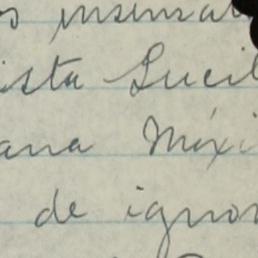 s insensat
ista Lucil
ana Máxi
de ignor